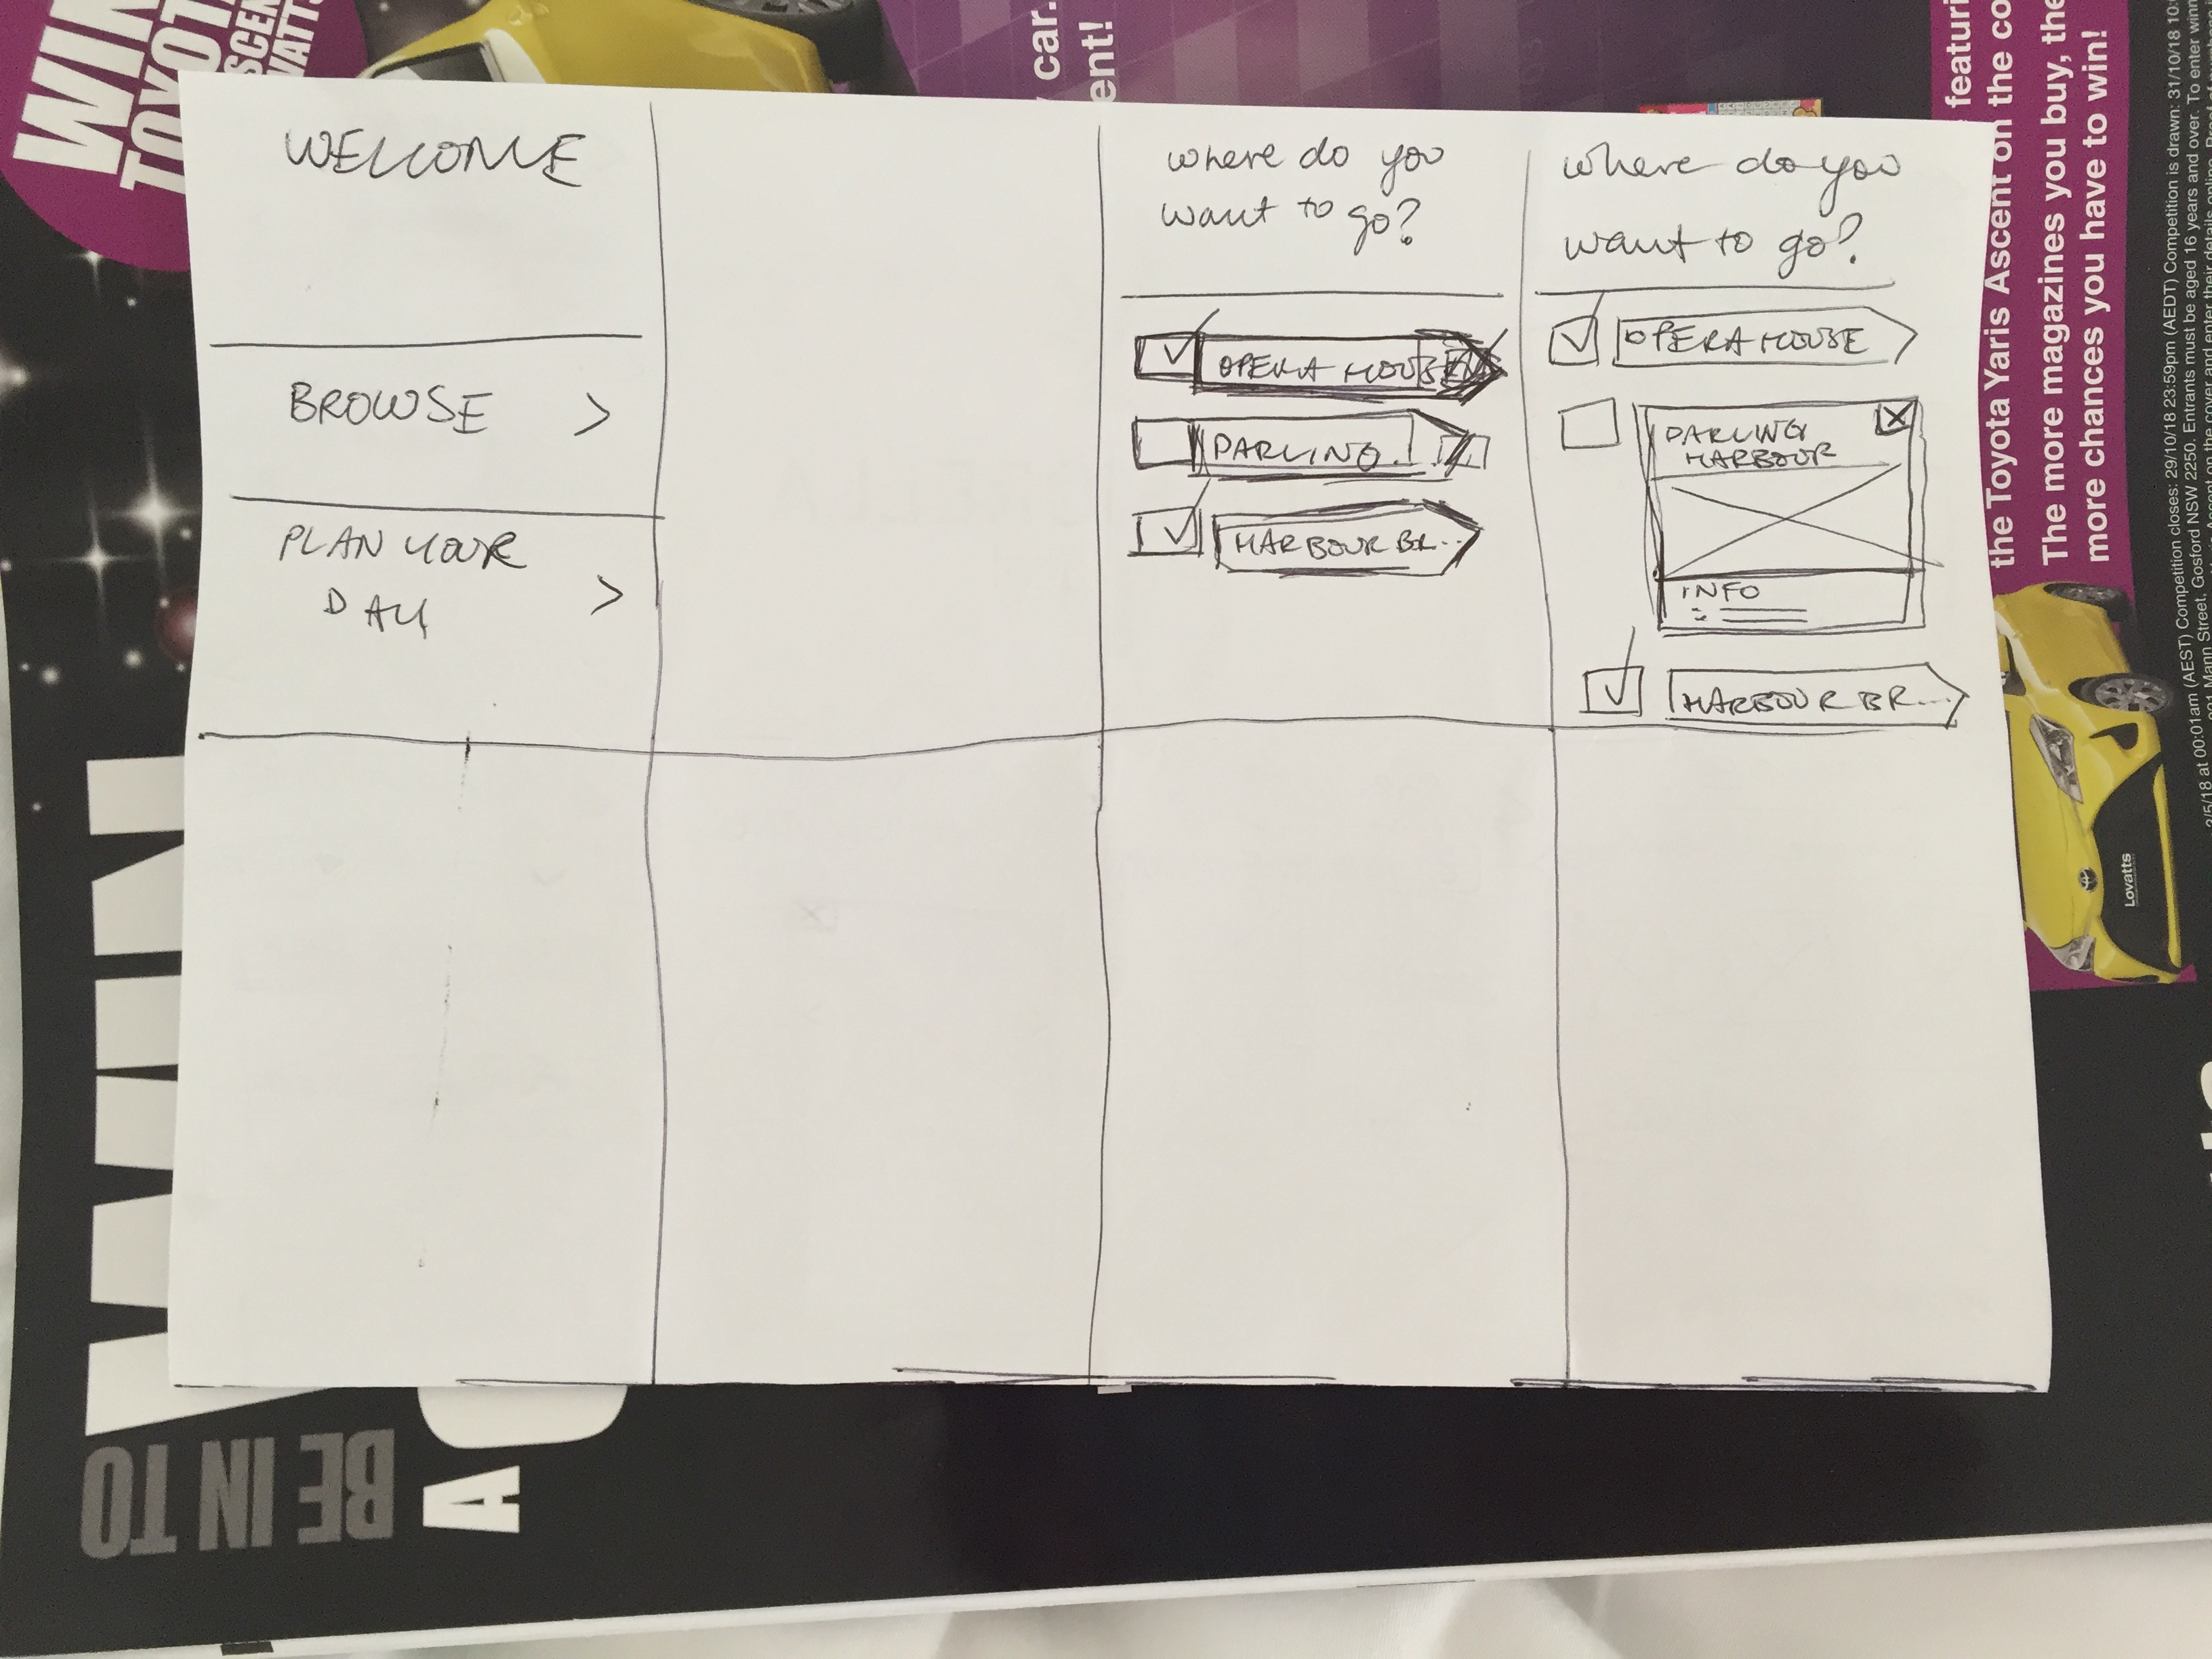 BE IN TO
WIN
A
WIN
TOYOT
SCEN
VATTS
WELCOME
BROWSE >
PLAN YOUR
DAY >
where do you
want to go?
OPERA HOUSE
DARLING..
HARBOUR BR...
where do you
want to go?
OPERA HOUSE
DARLING
HARBOUR
X
INFO
HARBOUR BR...
car.
ent!
featuri
the Toyota Yaris Ascent on the co
The more magazines you buy, the
more chances you have to win!
Lovatts
2/5/18 at 00:01am (AEST) Competition closes: 29/10/18 23:59pm (AEDT) Competition is drawn: 31/10/18 10:
Mann Street, Gosford NSW 2250. Entrants must be aged 16 years and over. To enter winn
Ascent on the cover and enter their details online.